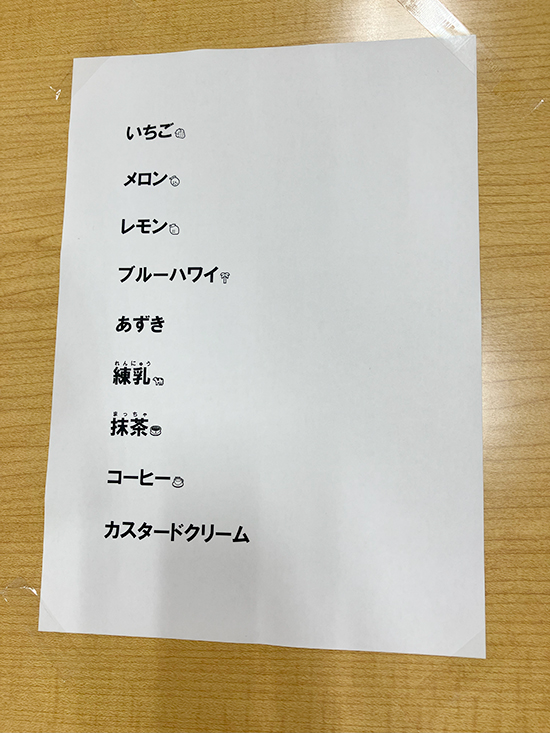 いちご
メロン
レモン
ブルーハワイ
あずき
れんにゅう
練乳
まっちゃ
抹茶
コーヒー
カスタードクリーム